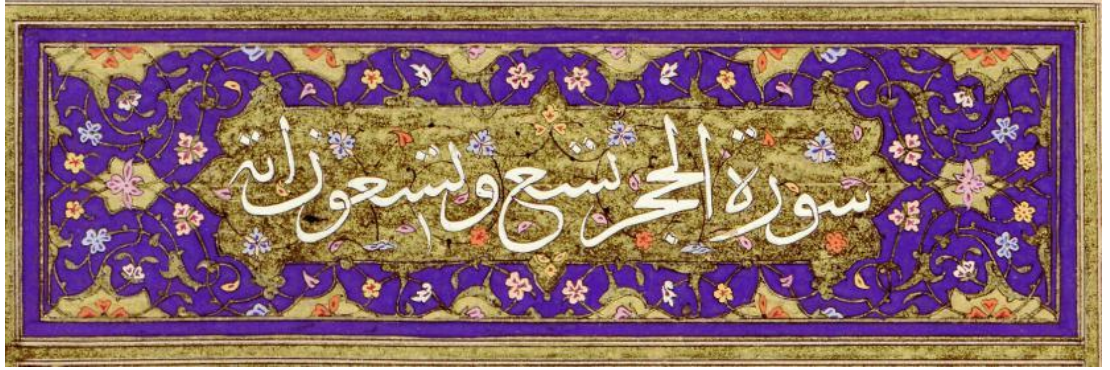 سورة الحجر تسع وتسعون اية